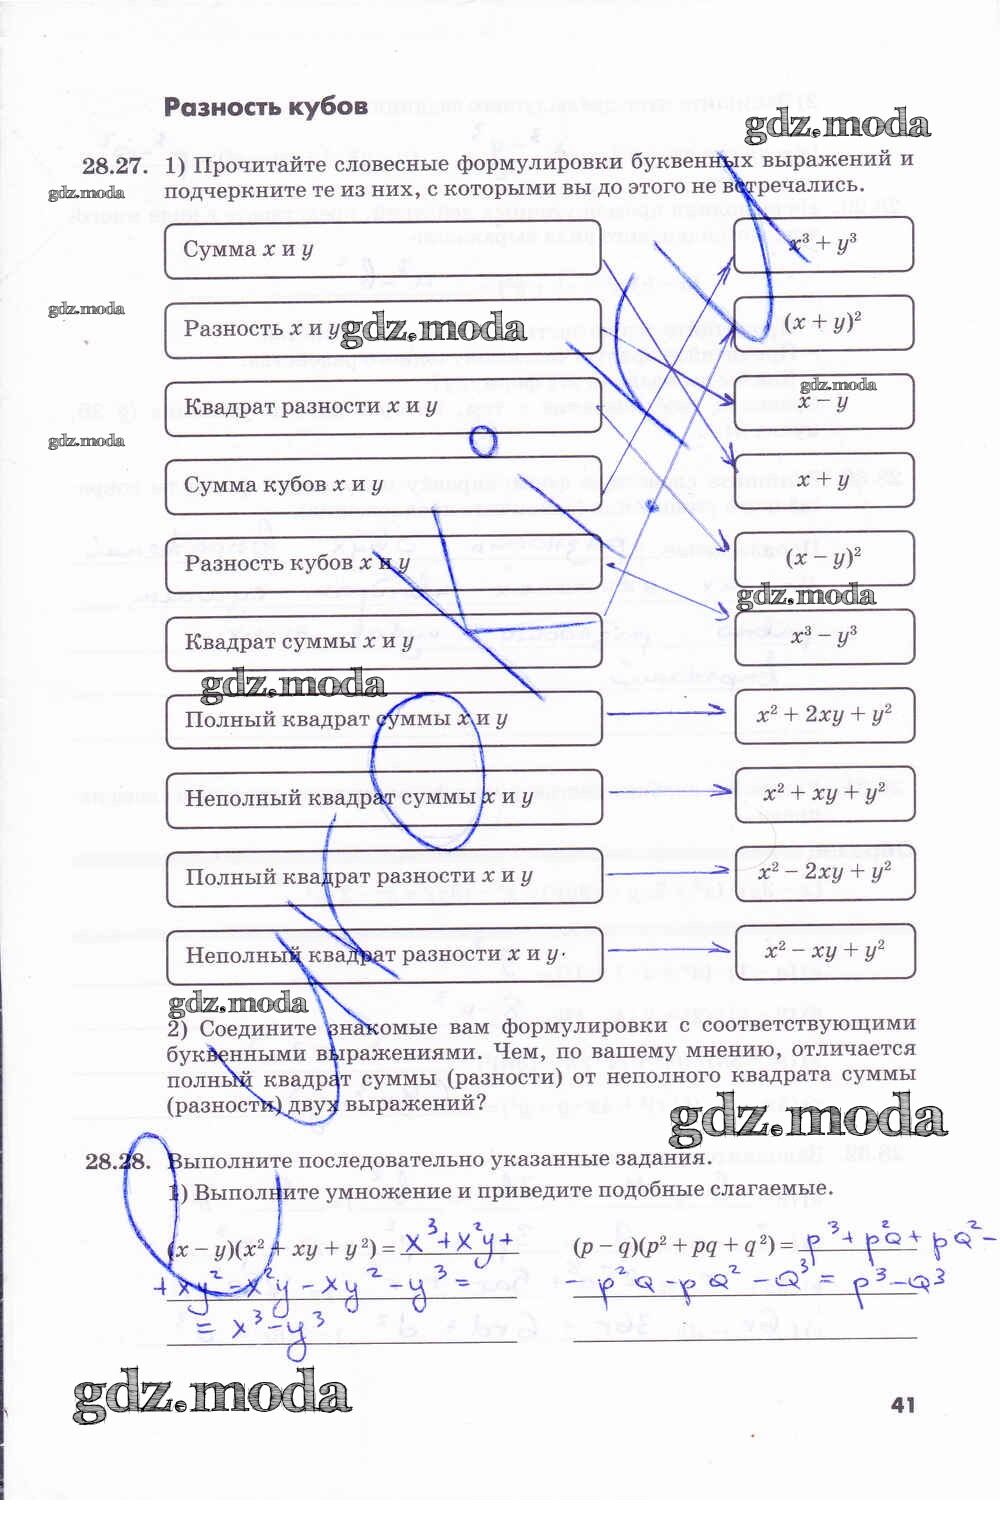 Разность кубов
gdz.moda
28.27. 1) Прочитайте словесные формулировки буквенных выражений и
gdz.moda
подчеркните те из них, с которыми вы до этого не встречались.
Сумма x и y
x³ + y³
gdz.moda
Разность x и y
gdz.moda
(x + y)²
gdz.moda
Квадрат разности x и y
x − y
gdz.moda
Сумма кубов x и y
x + y
Разность кубов x и y
(x − y)²
gdz.moda
Квадрат суммы x и y
x³ − y³
gdz.moda
Полный квадрат суммы x и y
x² + 2xy + y²
Неполный квадрат суммы x и y
x² + xy + y²
Полный квадрат разности x и y
x² − 2xy + y²
Неполный квадрат разности x и y
x² − xy + y²
gdz.moda
2) Соедините знакомые вам формулировки с соответствующими
буквенными выражениями. Чем, по вашему мнению, отличается
полный квадрат суммы (разности) от неполного квадрата суммы
(разности) двух выражений?
gdz.moda
28.28. Выполните последовательно указанные задания.
1) Выполните умножение и приведите подобные слагаемые.
(x − y)(x² + xy + y²) = x³+x²y+
+xy²−x²y−xy²−y³=
= x³−y³
(p − q)(p² + pq + q²) = p³+p²q+pq²−
−p²q−pq²−q³=p³−q³
gdz.moda
41